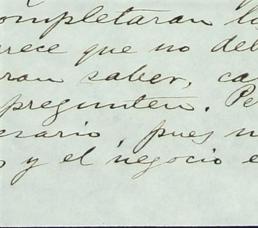 ompletaran la
arece que no deb
ran saber, ca
pregunten. Pe
esario, pues n
s y el negocio e